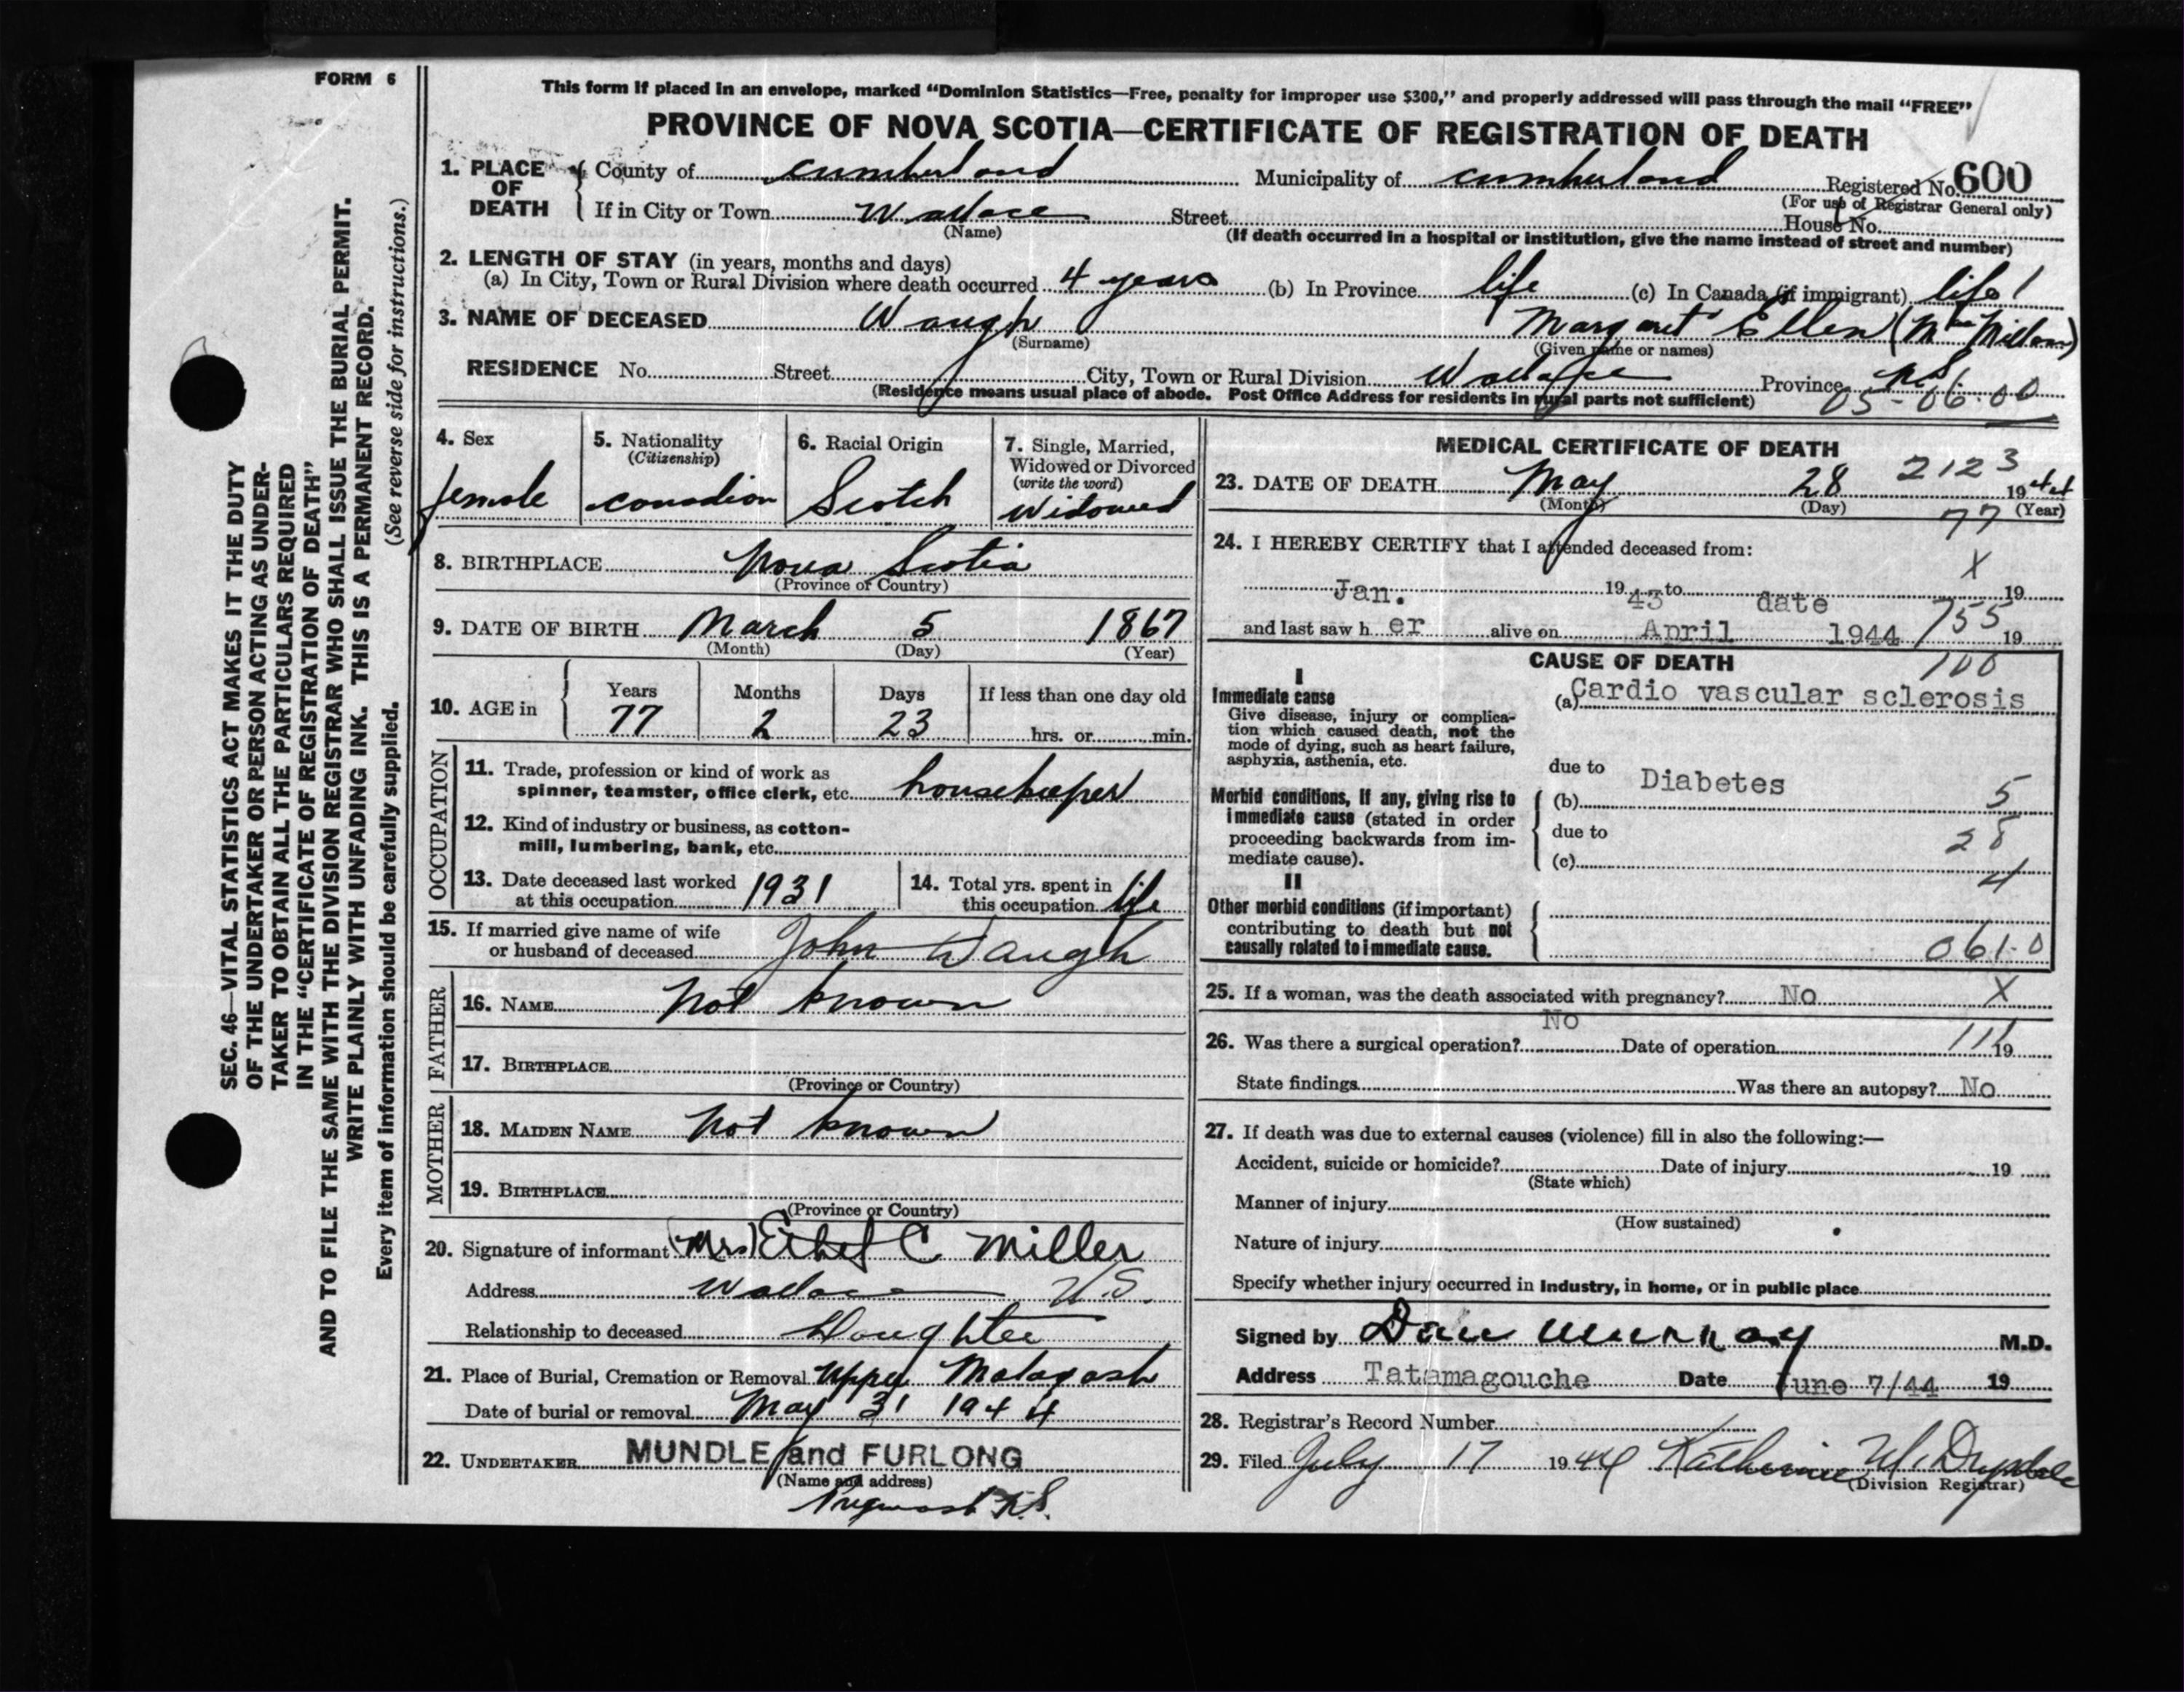 FORM 6
This form if placed in an envelope, marked "Dominion Statistics—Free, penalty for improper use $300," and properly addressed will pass through the mail "FREE"
PROVINCE OF NOVA SCOTIA—CERTIFICATE OF REGISTRATION OF DEATH
1. PLACE OF DEATH County of Cumberland Municipality of Cumberland Registered No. 600
(For use of Registrar General only)
If in City or Town Wallace Street House No.
(Name) (If death occurred in a hospital or institution, give the name instead of street and number)
2. LENGTH OF STAY (in years, months and days)
(a) In City, Town or Rural Division where death occurred 4 years (b) In Province life (c) In Canada (if immigrant) life
3. NAME OF DECEASED Waugh Margaret Ellen (McMillan)
(Surname) (Given name or names)
RESIDENCE No. Street City, Town or Rural Division Wallace Province N.S.
(Residence means usual place of abode. Post Office Address for residents in rural parts not sufficient) 05-06.00
4. Sex female
5. Nationality (Citizenship) Canadian
6. Racial Origin Scotch
7. Single, Married, Widowed or Divorced (write the word) Widowed
8. BIRTHPLACE Nova Scotia
(Province or Country)
9. DATE OF BIRTH March 5 1867
(Month) (Day) (Year)
10. AGE in Years 77 Months 2 Days 23 If less than one day old hrs. or min.
OCCUPATION
11. Trade, profession or kind of work as
spinner, teamster, office clerk, etc. housekeeper
12. Kind of industry or business, as cotton-
mill, lumbering, bank, etc.
13. Date deceased last worked at this occupation 1931
14. Total yrs. spent in this occupation life
15. If married give name of wife
or husband of deceased John Waugh
FATHER
16. NAME Not known
17. BIRTHPLACE
(Province or Country)
MOTHER
18. MAIDEN NAME Not known
19. BIRTHPLACE
(Province or Country)
20. Signature of informant (Mrs) Ethel C. Miller
Address Wallace N.S.
Relationship to deceased Daughter
21. Place of Burial, Cremation or Removal Upper Malagash
Date of burial or removal May 31 1944
22. UNDERTAKER MUNDLE and FURLONG
(Name and address)
Pugwash N.S.
MEDICAL CERTIFICATE OF DEATH
2123
23. DATE OF DEATH May 28 1944
(Month) (Day) (Year)
77
24. I HEREBY CERTIFY that I attended deceased from:
X
Jan. 1943 to date 19
and last saw her alive on April 1944 19
755
CAUSE OF DEATH
100
I
Immediate cause
Give disease, injury or complica-
tion which caused death, not the
mode of dying, such as heart failure,
asphyxia, asthenia, etc.
(a) Cardio vascular sclerosis
due to
Morbid conditions, if any, giving rise to
immediate cause (stated in order
proceeding backwards from im-
mediate cause).
(b) Diabetes 5
due to 28
(c) 4
II
Other morbid conditions (if important)
contributing to death but not
causally related to immediate cause.
061.0
25. If a woman, was the death associated with pregnancy? No X
26. Was there a surgical operation? No Date of operation 19
State findings Was there an autopsy? No
27. If death was due to external causes (violence) fill in also the following:—
Accident, suicide or homicide? Date of injury 19
(State which)
Manner of injury
(How sustained)
Nature of injury
Specify whether injury occurred in industry, in home, or in public place
Signed by Dan Murray M.D.
Address Tatamagouche Date June 7/44 19
28. Registrar's Record Number
29. Filed July 17 1944 Katherine M. Drysdale
(Division Registrar)
SEC. 46—VITAL STATISTICS ACT MAKES IT THE DUTY
OF THE UNDERTAKER OR PERSON ACTING AS UNDER-
TAKER TO OBTAIN ALL THE PARTICULARS REQUIRED
IN THE "CERTIFICATE OF REGISTRATION OF DEATH"
AND TO FILE THE SAME WITH THE DIVISION REGISTRAR WHO SHALL ISSUE THE BURIAL PERMIT.
WRITE PLAINLY WITH UNFADING INK. THIS IS A PERMANENT RECORD.
Every item of information should be carefully supplied. (See reverse side for instructions.)